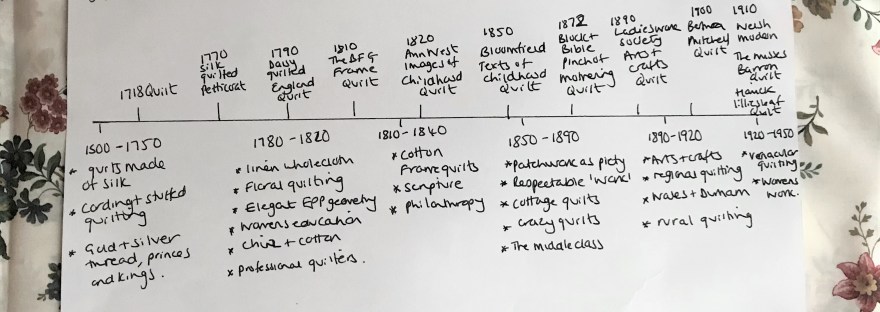 1718 Quilt
1770
Silk
quilted
Petticoat
1790
Daisy
quilted
England
Quilt
1810
Frame
Quilt
1820
Ann West
Images of
Childhood
Quilt
1850
Bloomfield
Texts of
childhood
Quilt
1872
Block +
Bible
Pinch of
mothering
Quilt
1890
Ladies work
Society
Arts +
crafts
Quilt
1900
Mitchell
Quilt
1910
Welsh
modern
The misses
Barron
Quilt
Quilt
1500 - 1750
* quilts made
of silk
* Cording + stuffed
quilting
* Gold + silver
thread, princes
and kings.
1780 - 1820
* linen wholecloth
* Floral quilting
* Elegant EPP geometry
* Womens education
* Chinz + cotton
* professional quilters.
1810 - 1840
* Cotton
Frame quilts
* Scripture
* Philanthropy
1850 - 1890
* Patchwork as piety
* Respectable 'Work'
* Cottage quilts
* crazy quilts
* The middle class
1890 - 1920
* Arts + crafts
* regional quilting
* Wales + Durham
* rural quilting
1920 - 1950
* vernacular
quilting
* Womens
work.